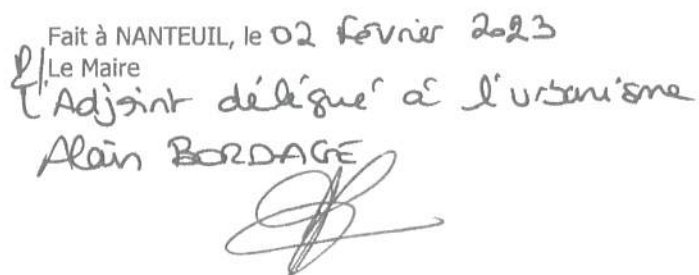 Fait à NANTEUIL, le 02 février 2023
P/Le Maire
L'Adjoint délégué à l'urbanisme
Alain BORDAGE